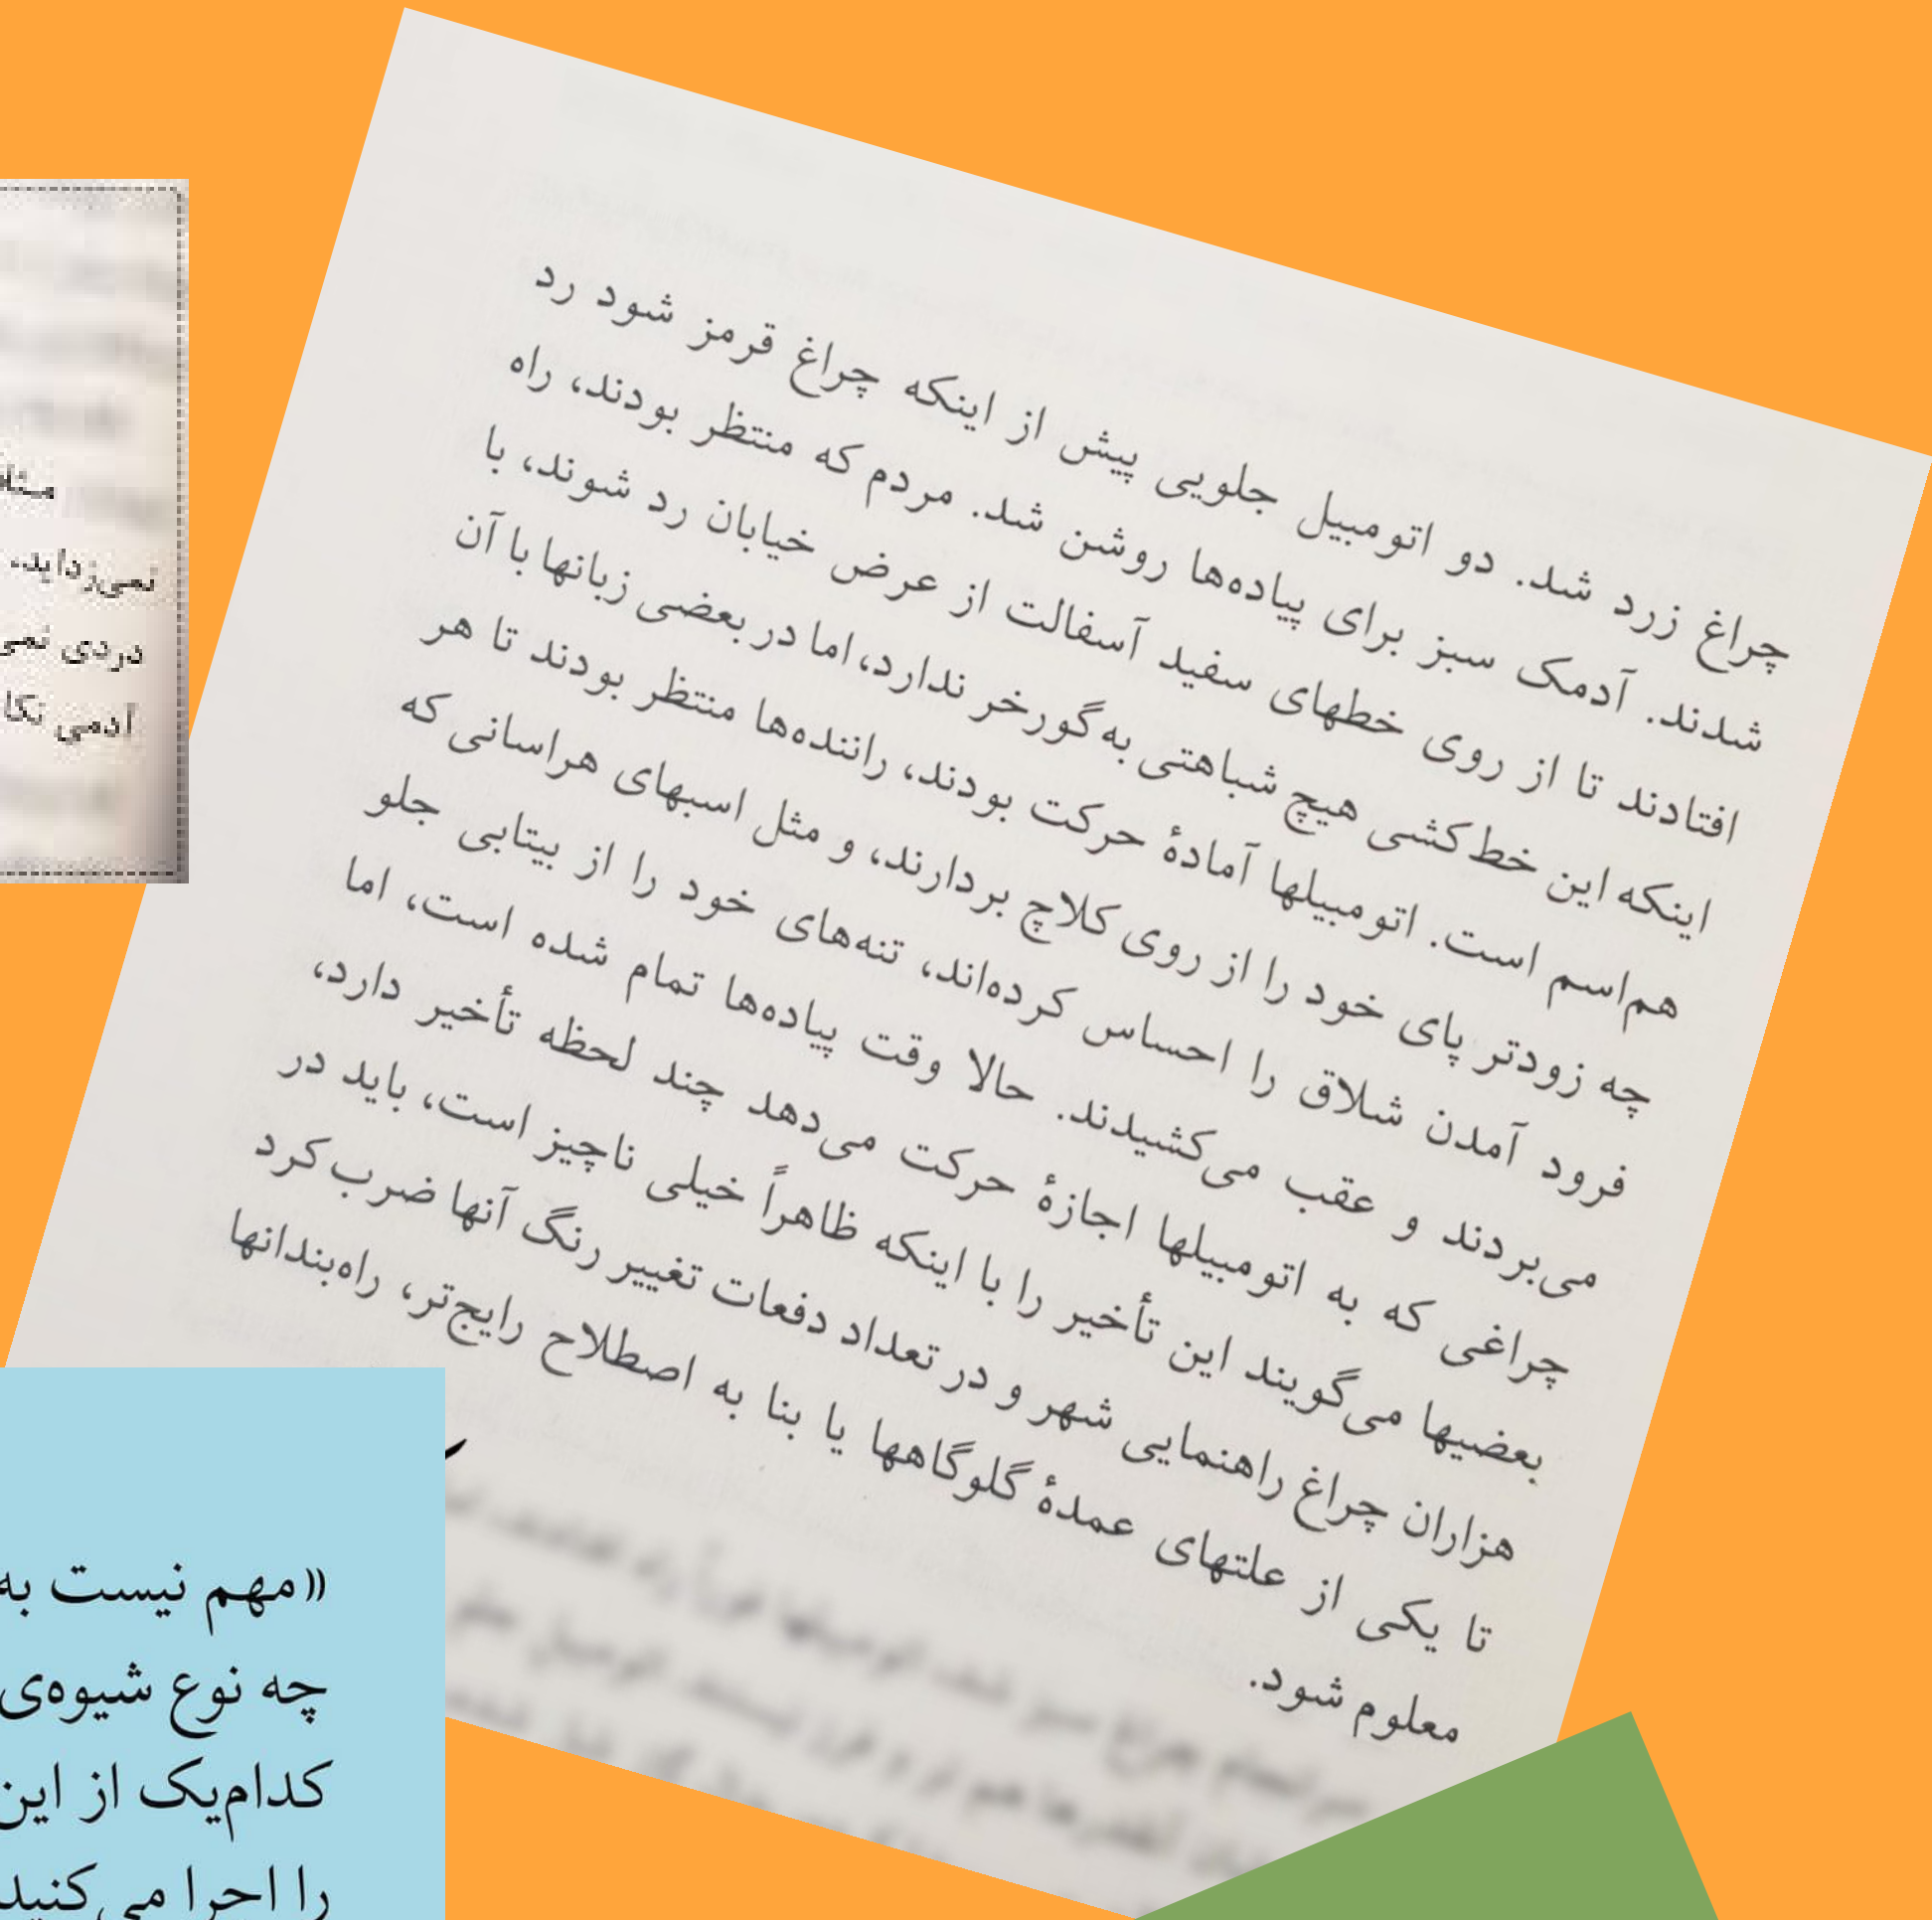 چراغ زرد شد. دو اتومبیل جلویی پیش از اینکه چراغ قرمز شود رد
شدند. آدمک سبز برای پیاده‌ها روشن شد. مردم که منتظر بودند، راه
افتادند تا از روی خطهای سفید آسفالت از عرض خیابان رد شوند، با
اینکه این خط‌کشی هیچ شباهتی به گورخر ندارد، اما در بعضی زبانها با آن
هم‌اسم است. اتومبیلها آمادهٔ حرکت بودند، راننده‌ها منتظر بودند تا هر
چه زودتر پای خود را از روی کلاچ بردارند، و مثل اسبهای هراسانی که
فرود آمدن شلاق را احساس کرده‌اند، تنه‌های خود را از بیتابی جلو
می‌بردند و عقب می‌کشیدند. حالا وقت پیاده‌ها تمام شده است، اما
چراغی که به اتومبیلها اجازهٔ حرکت می‌دهد چند لحظه تأخیر دارد،
بعضیها می‌گویند این تأخیر را با اینکه ظاهراً خیلی ناچیز است، باید در
هزاران چراغ راهنمایی شهر و در تعداد دفعات تغییر رنگ آنها ضرب کرد
تا یکی از علتهای عمدهٔ گلوگاهها یا بنا به اصطلاح رایج‌تر، راه‌بندانها
معلوم شود.
نمی‌زداید.
دردی نمی
آدمی
«مهم نیست به
چه نوع شیوه‌ی
کدام‌یک از این
را اجرا می‌کنید